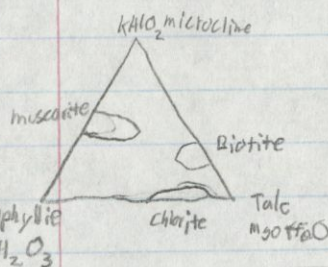 KAlO2 microcline
muscovite
Biotite
phyllie
Chlorite
Talc
H2O3
MgO + FeO